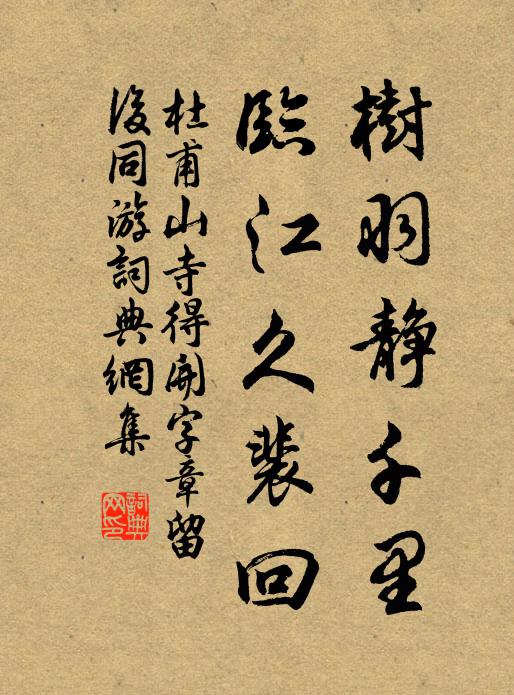 樹羽静千里
臨江久裴回
杜甫山寺得開字章留
後同游詞典網集
詞典网印